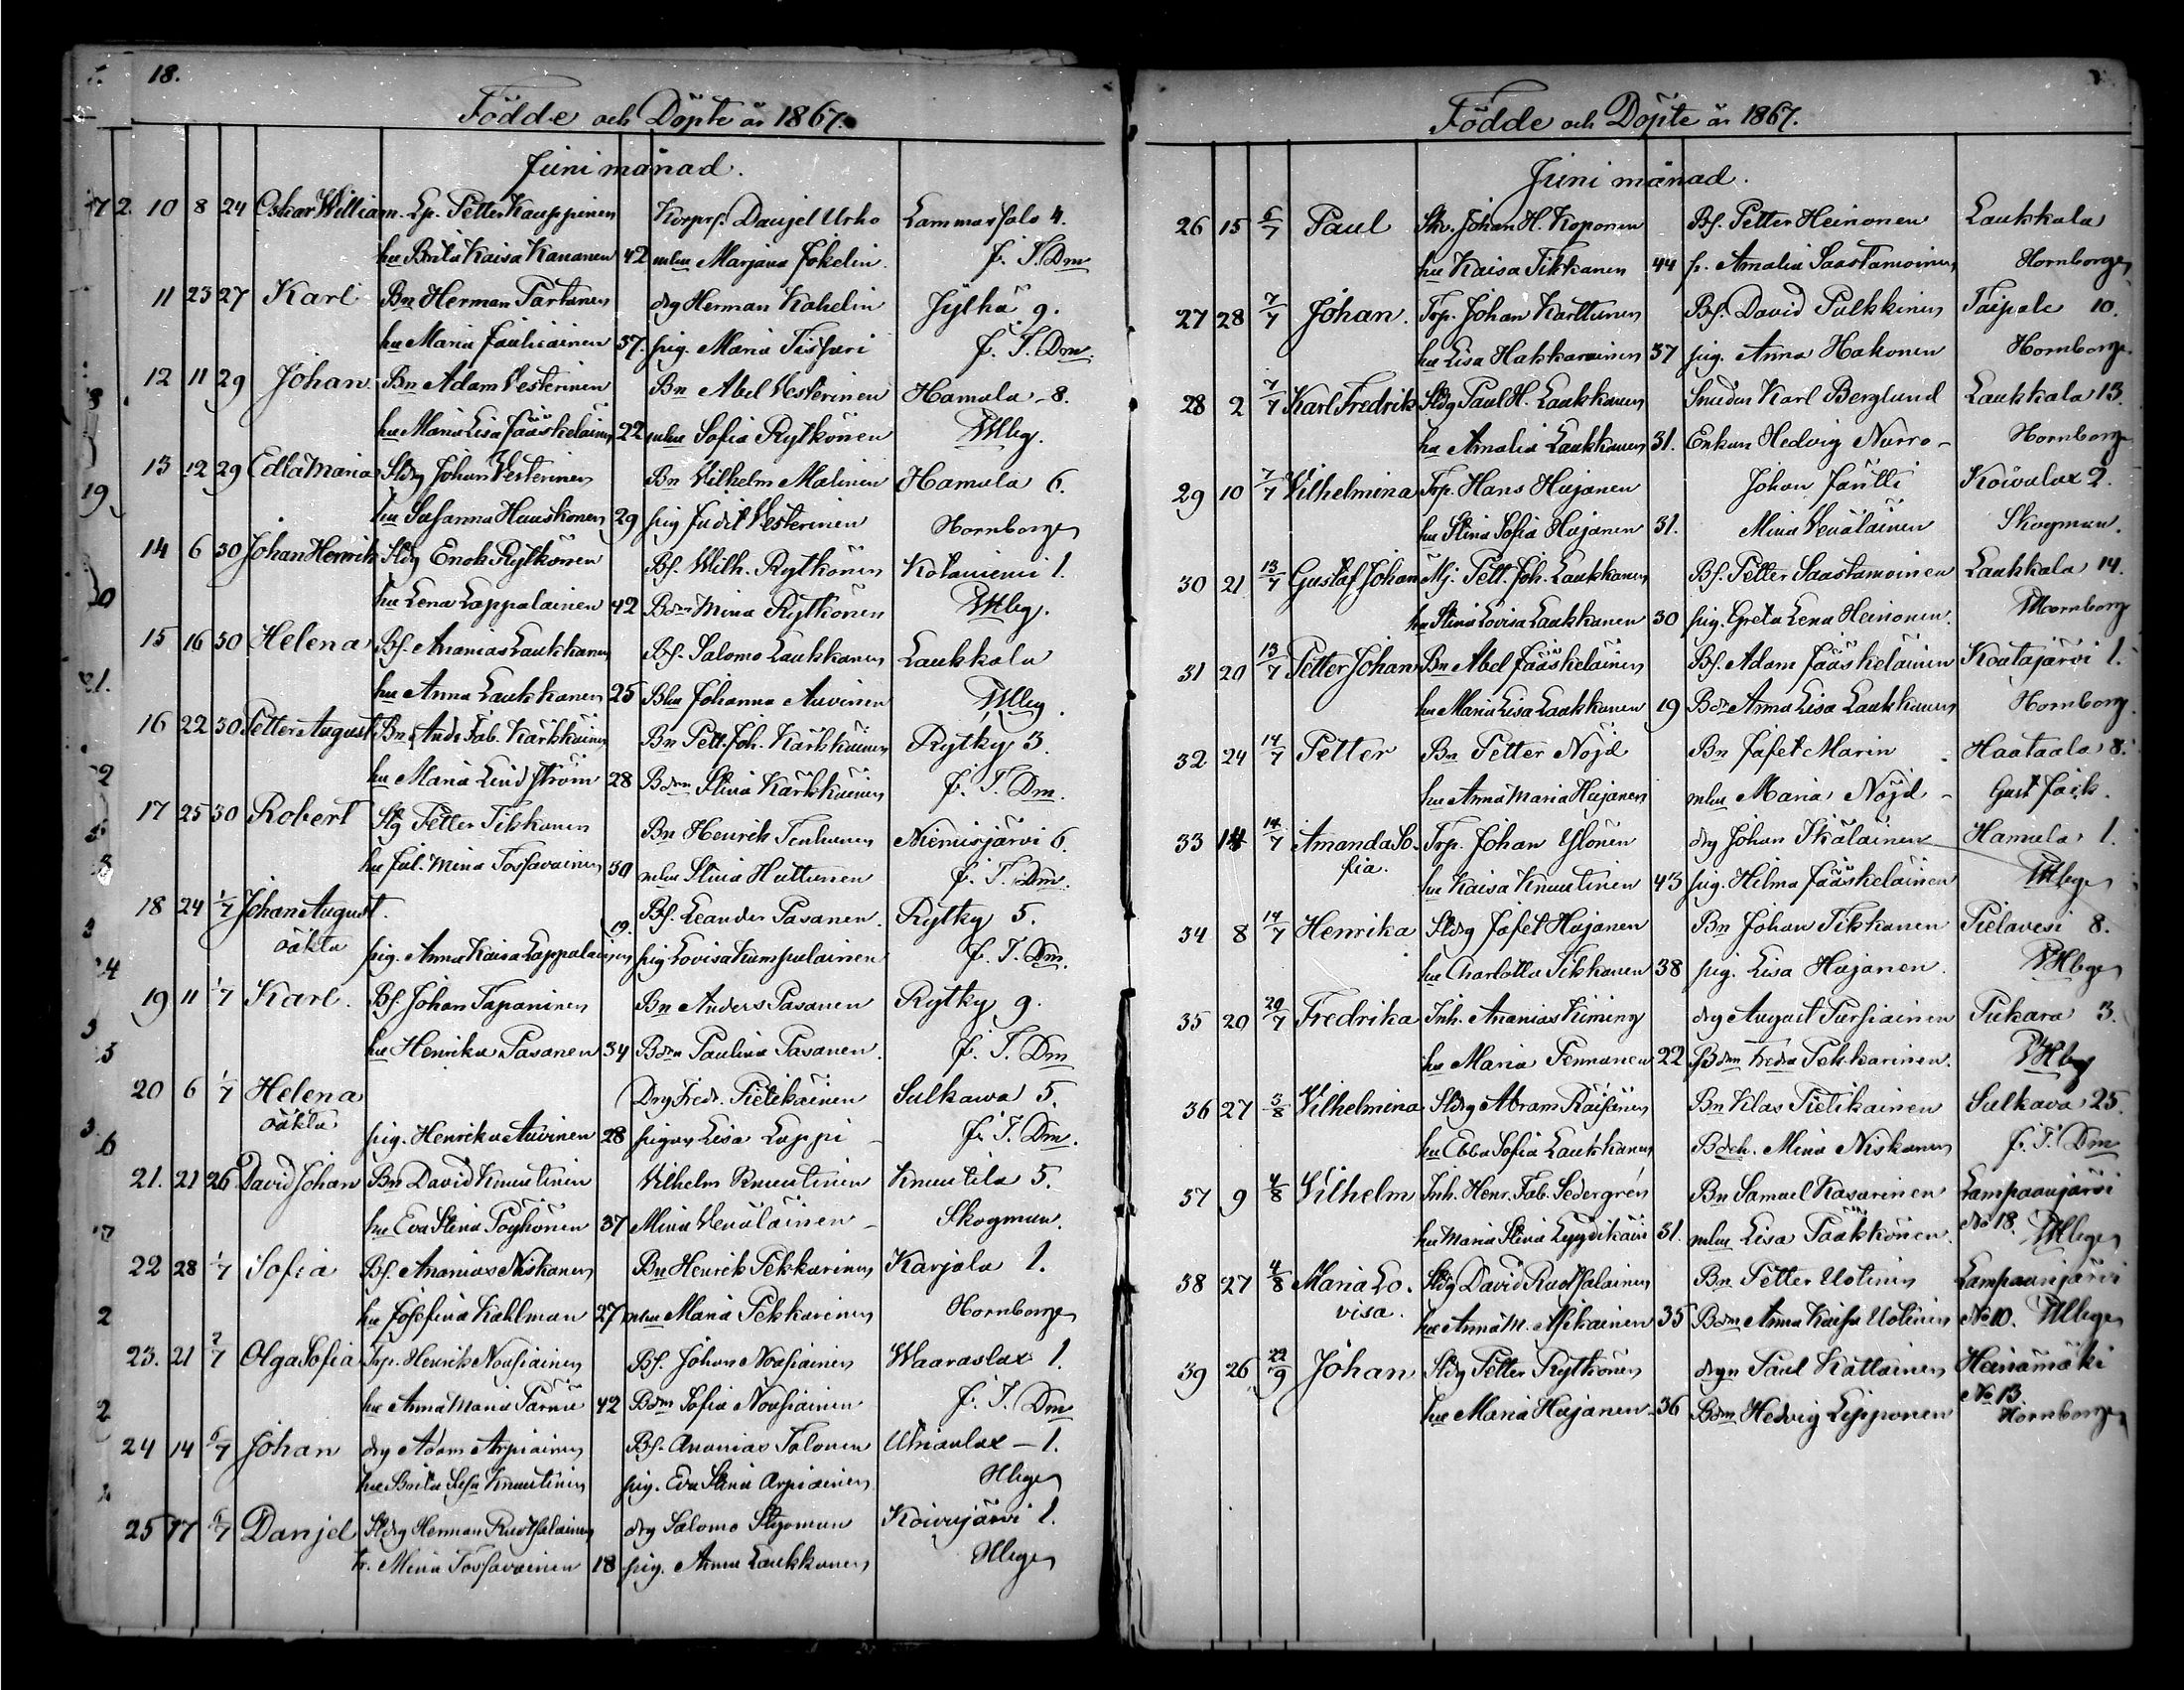 18.
Födde och Döpte år 1867.
Juni månad.
10 8 24 Oskar William. Lp. Petter Kauppinen Korprs. Danjel Urho Lammassalo 4.
hu Brita Kaisa Kananen 42 mhu Marjana Jokelin. J. T. Dm
11 23 27 Karl Bn Herman Tartanen drg Herman Kokelin Jylhä 9.
hu Maria Jauhiainen 37. pig. Maria Tissari J. T. Dm.
12 11 29 Johan Bn Adam Vesterinen Bn Abel Vesterinen Hamula 8.
hu Maria Lisa Jääskeläinen 22 mhu Sofia Rytkönen
13 12 29 Edla Maria Sldrg Johan Vesterinen Bn Vilhelm Malinen Hamula 6.
hu Susanna Hauskonen 29 pig Judit Vesterinen Hornborg
14 6 30 Johan Henrik Sldrg Enok Rytkönen Bs. Wilh. Rytkönen Kotaniemi 1.
hu Lena Lappalainen 42 Bdm Mina Rytkönen
15 16 30 Helena Bs. Ananias Laukkanen Bs. Salomo Laukkanen Laukkala
hu Anna Laukkanen 25 Bhu Johanna Auvinen
16 22 30 Petter August Bn Ands Fab. Kärkkäinen Bn Pett. Joh. Kärkkäinen Rytky 3.
hu Maria Lindström 28 Bdm Stina Kärkkäinen J. T. Dm.
17 25 30 Robert Sldg Petter Tikkanen Bn Henrik Tenhunen Niemisjärvi 6.
hu Jul. Mina Tossavainen 30 mhu Stina Huttunen J. T. Dm.
18 24 1/7 Johan August. 19. Bs. Leander Pasanen. Rytky 5.
oäkta pig. Anna Kaisa Lappalainen pig Lovisa Kumpulainen J. T. Dm.
19 11 1/7 Karl. Bs. Johan Tapaninen Bn Anders Pasanen Rytky 9.
hu Henrika Pasanen 34 Bdm Paulina Pasanen. J. T. Dm
20 6 1/7 Helena Drg Fredr. Pietikäinen Sulkawa 5.
oäkta pig. Henrika Auvinen 28 pigan Lisa Lappi J. T. Dm.
21. 21 26 David Johan Bn David Knuutinen Vilhelm Knuutinen Knuutila 5.
hu Eva Stina Pöyhönen 37 Mina Venäläinen Skogman.
22 28 1/7 Sofia Bs. Ananias Niskanen Bn Henrik Pekkarinen Karjala 1.
hu Josefina Kahlman 27 mhu Maria Pekkarinen Hornborg
23. 21 2/7 Olga Sofia Trp. Henrik Nousiainen Bs. Johan Nousiainen Waaraslax 1.
hu Anna Maria Pärnä 42 Bdm Sofia Nousiainen J. T. Dm
24 14 6/7 Johan drg Adam Arpiainen Bs. Ananias Tolonen Utrianlax 1.
hu Brita Sofia Knuutinen pig. Eva Stina Arpiainen
25 17 6/7 Danjel Sldrg Herman Ruotsalainen drg Salomo Stigman Koivujärvi 1.
h. Mina Tossavainen 18 pig. Anna Laukkanen
Födde och Döpte år 1867.
Juni månad.
26 15 6/7 Paul Skr. Johan H. Koponen Bs. Petter Heinonen Laukkala
hu Kaisa Tikkanen 44 p. Amalia Saastamoinen Hornborg
27 28 7/7 Johan. Trp. Johan Karttunen Bs. David Pulkkinen Taipale 10.
hu Lisa Hakkarainen 37 pig. Anna Hakonen Hornborg
28 2 7/7 Karl Fredrik Sldg Paul H. Laukkanen Smeden Karl Berglund Laukkala 13.
hu Amalia Laukkanen 31. Enkan Hedvig Nurro Hornborg
29 10 7/7 Vilhelmina Trp. Hans Hujanen Johan Jäntti Koivulax 2.
hu Stina Sofia Hujanen 31. Mina Venäläinen Skogman.
30 21 13/7 Gustaf Johan Mj. Pett. Joh. Laukkanen Bs. Petter Saastamoinen Laukkala 14.
hu Stina Lovisa Laukkanen 30 pig. Greta Lena Heinonen. Hornborg
31 20 13/7 Petter Johan Bn Abel Jääskeläinen Bs. Adam Jääskeläinen Koatajärvi 1.
hu Maria Lisa Laukkanen 19 Bdr Anna Lisa Laukkanen Hornborg.
32 24 14/7 Petter Bn Petter Nöjd Bn Jafet Marin Haataala 8.
hu Anna Maria Hujanen mhu Maria Nöjd Gust Jack.
33 14 14/7 Amanda So- Trp. Johan Ylönen drg Johan Ikäläinen Hamula 1.
fia. hu Kaisa Knuutinen 43 pig. Hilma Jääskeläinen
34 8 14/7 Henrika Sldrg Jafet Hujanen Bn Johan Tikkanen Pielavesi 8.
hu Charlotta Tikkanen 38 pig. Lisa Hujanen.
35 20 20/7 Fredrika Inh. Ananias Kiming drg August Pursiainen Pukara 3.
hu Maria Pennanen 22 Bdm Fredra Pekkarinen.
36 27 3/8 Vilhelmina Sldrg Abram Räisänen Bn Klas Pietikainen Sulkava 25.
hu Ebba Sofia Laukkanen Bdch. Mina Niskanen J. T. Dm
37 9 4/8 Vilhelm Inh. Henr. Fab. Sedergrén Bn Samuel Kasurinen Lampaanjärvi
hu Maria Stina Lyydikäin 31. mhu Lisa Pääkkönen. No 18.
38 27 4/8 Maria Lo- Sldg David Ruotsalainen Bn Petter Uotinen Lampaanjärvi
visa. hu Anna M. Asikainen 35 Bdm Anna Kaisa Uotinen No 10.
39 26 22/9 Johan Sldrg Petter Rytkönen drgn Paul Kattainen Heinämäki
hu Maria Hujanen 36 Bdm Hedvig Lipponen No 13
Hornborg